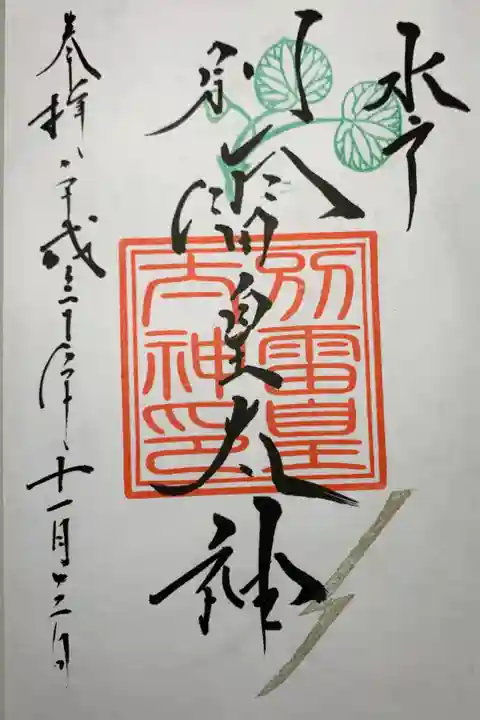 水戸
別雷皇太神
別雷皇
太神印
奉拝 平成三十年 十一月